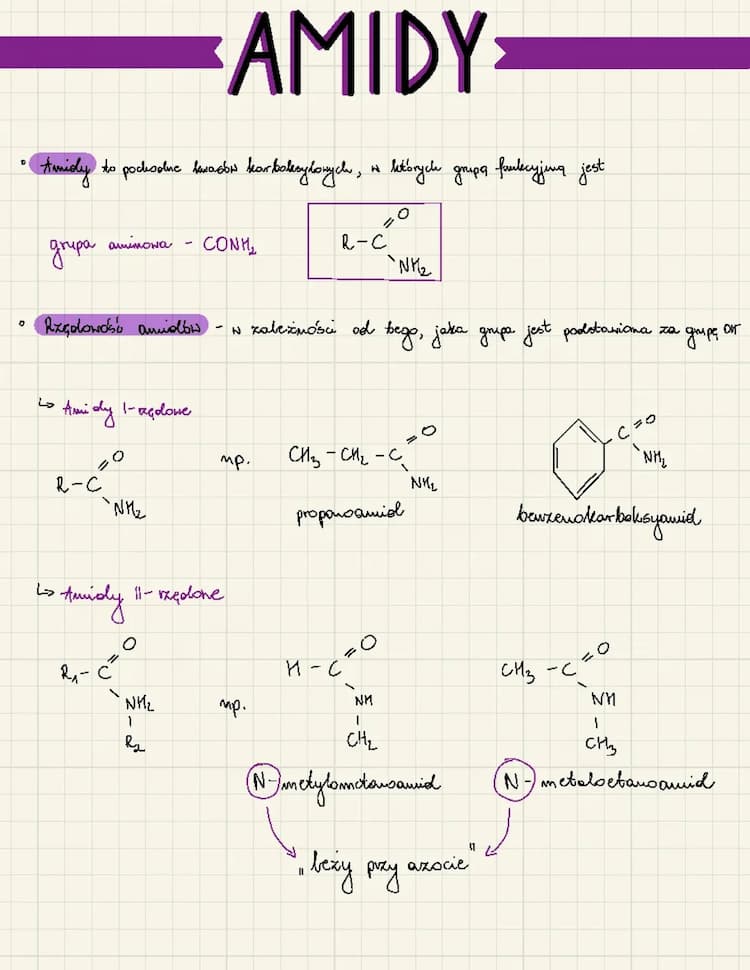 AMIDY
• Amidy to pochodne kwasów karboksylowych, w których grupą funkcyjną jest
grupa aminowa - CONH₂
R-C
=O
NH₂
• Rzędowość amidów - w zależności od tego, jaka grupa jest podstawiona za grupę OH
↳ Amidy I-rzędowe
R-C
=O
NH₂
np.
CH₃-CH₂-C
=O
NH₂
propanoamid
C=O
NH₂
benzenokarboksyamid
↳ Amidy II-rzędowe
R₁-C
=O
NH₂
R₂
np.
H-C
=O
NH
CH₂
N-metylometanoamid
CH₃-C
=O
NH
CH₃
N-metyloetanoamid
"leży przy azocie"